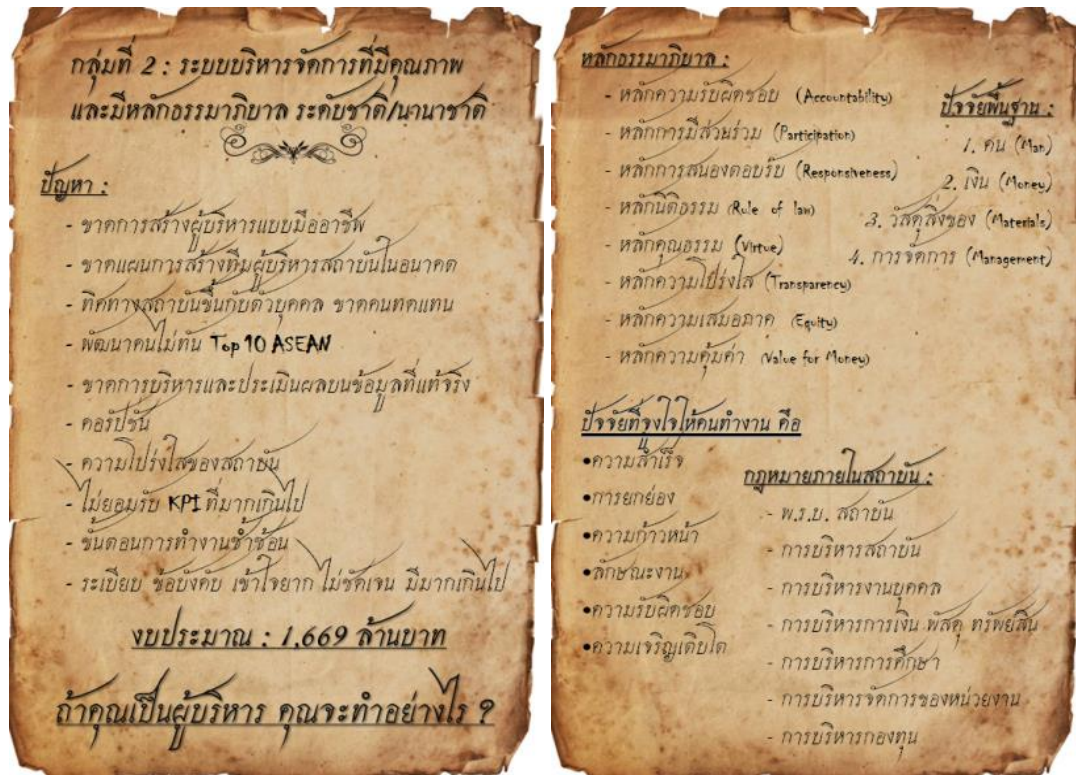 กลุ่มที่ 2 : ระบบบริหารจัดการที่มีคุณภาพ
และมีหลักธรรมาภิบาล ระดับชาติ/นานาชาติ
ปัญหา :
- ขาดการสร้างผู้บริหารแบบมืออาชีพ
- ขาดแผนการสร้างทีมผู้บริหารสถาบันในอนาคต
- ทิศทางสถาบันขึ้นกับตัวบุคคล ขาดคนทดแทน
- พัฒนาคนไม่ทัน Top 10 ASEAN
- ขาดการบริหารและประเมินผลบนข้อมูลที่แท้จริง
- คอรัปชั่น
- ความโปร่งใสของสถาบัน
- ไม่ยอมรับ KPI ที่มากเกินไป
- ขั้นตอนการทำงานซ้ำซ้อน
- ระเบียบ ข้อบังคับ เข้าใจยาก ไม่ชัดเจน มีมากเกินไป
งบประมาณ : 1,669 ล้านบาท
ถ้าคุณเป็นผู้บริหาร คุณจะทำอย่างไร ?
หลักธรรมาภิบาล :
- หลักความรับผิดชอบ (Accountability)
- หลักการมีส่วนร่วม (Participation)
- หลักการสนองตอบรับ (Responsiveness)
- หลักนิติธรรม (Rule of law)
- หลักคุณธรรม (Virtue)
- หลักความโปร่งใส (Transparency)
- หลักความเสมอภาค (Equity)
- หลักความคุ้มค่า (Value for Money)
ปัจจัยพื้นฐาน :
1. คน (Man)
2. เงิน (Money)
3. วัสดุสิ่งของ (Materials)
4. การจัดการ (Management)
ปัจจัยที่จูงใจให้คนทำงาน คือ
•ความสำเร็จ
•การยกย่อง
•ความก้าวหน้า
•ลักษณะงาน
•ความรับผิดชอบ
•ความเจริญเติบโต
กฎหมายภายในสถาบัน :
- พ.ร.บ. สถาบัน
- การบริหารสถาบัน
- การบริหารงานบุคคล
- การบริหารการเงิน พัสดุ ทรัพย์สิน
- การบริหารการศึกษา
- การบริหารจัดการของหน่วยงาน
- การบริหารกองทุน